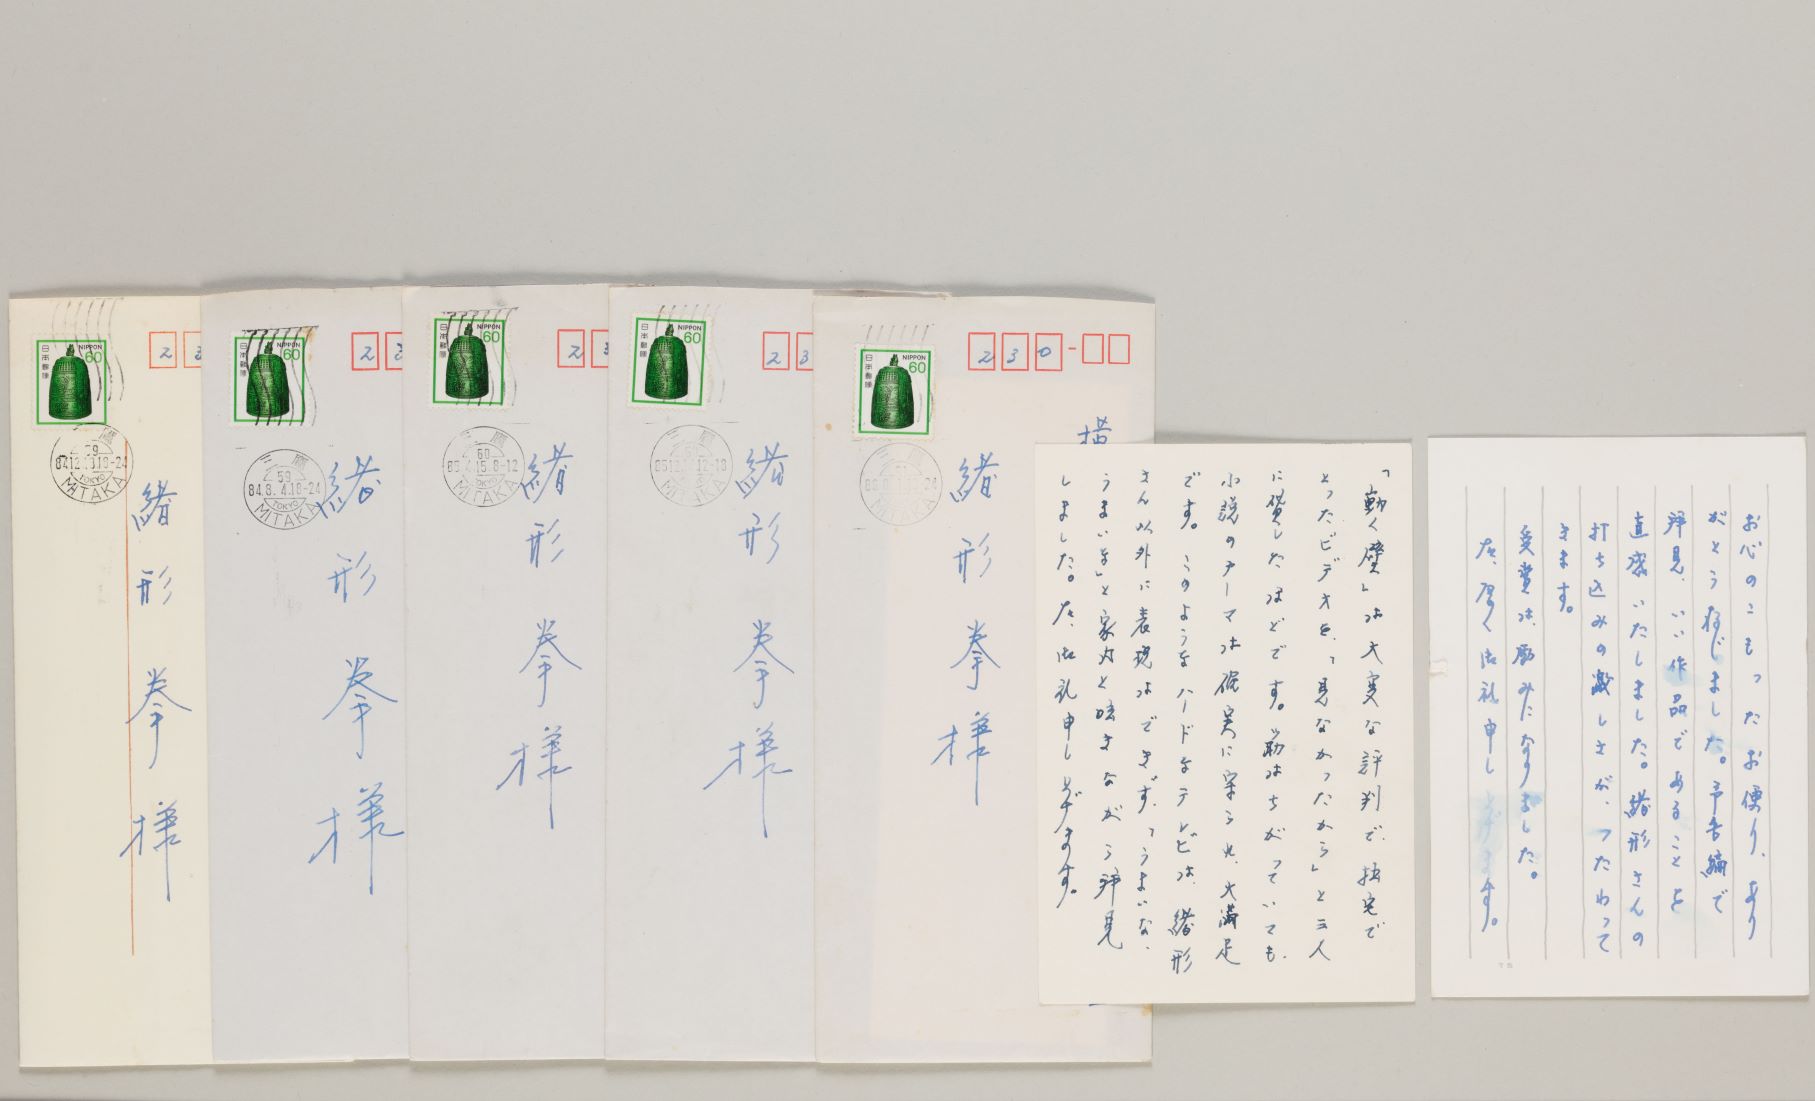 日本郵便
NIPPON
60
三鷹
59
84.12.
18-24
TOKYO
MITAKA
2 3
緒形 拳 様
日本郵便
NIPPON
60
三鷹
59
84.8.4.18-24
TOKYO
MITAKA
2 3
緒形 拳 様
日本郵便
NIPPON
60
三鷹
60
85.4.15.8-12
TOKYO
MITAKA
2 3
緒形 拳 様
日本郵便
NIPPON
60
三鷹
60
12-18
TOKYO
MITAKA
2 3
緒形 拳 様
日本郵便
NIPPON
60
三鷹
TOKYO
MITAKA
2 3 0
横
緒形 拳 様
「動く壁」は大変な評判で、拙宅で
とったビデオを、「見なかったから」と三人
に貸したほどです。筋はちがっていても、
小説のテーマは確実に守られ、大満足
です。このようなハードなテレビは、緒形
さん以外に表現はできず、「うまいな、
うまいな」と家内と呟きながら拝見
しました。右、御礼申し上げます。
お心のこもったお便り、あり
がとう存じました。予告編で
拝見、いい作品であることを
直感いたしました。緒形さんの
打ち込みの激しさが、つたわって
きます。
受賞は、励みになりました。
右、厚く御礼申し上げます。